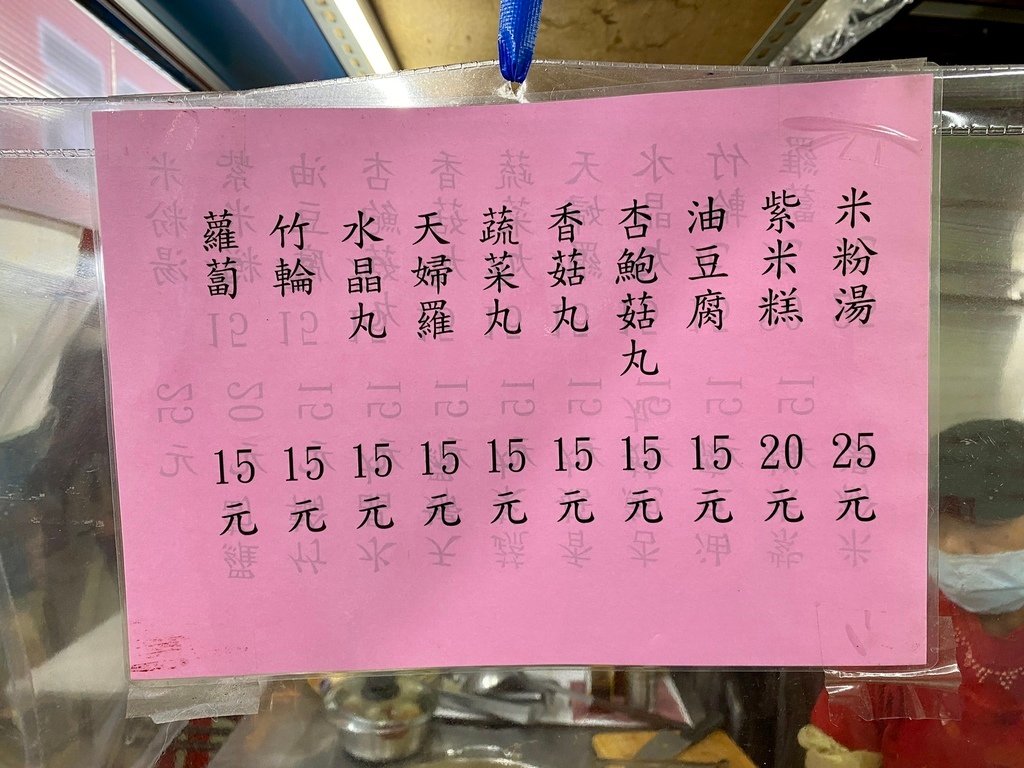 米粉湯 25元
紫米糕 20元
油豆腐 15元
杏鮑菇丸 15元
香菇丸 15元
蔬菜丸 15元
天婦羅 15元
水晶丸 15元
竹輪 15元
蘿蔔 15元